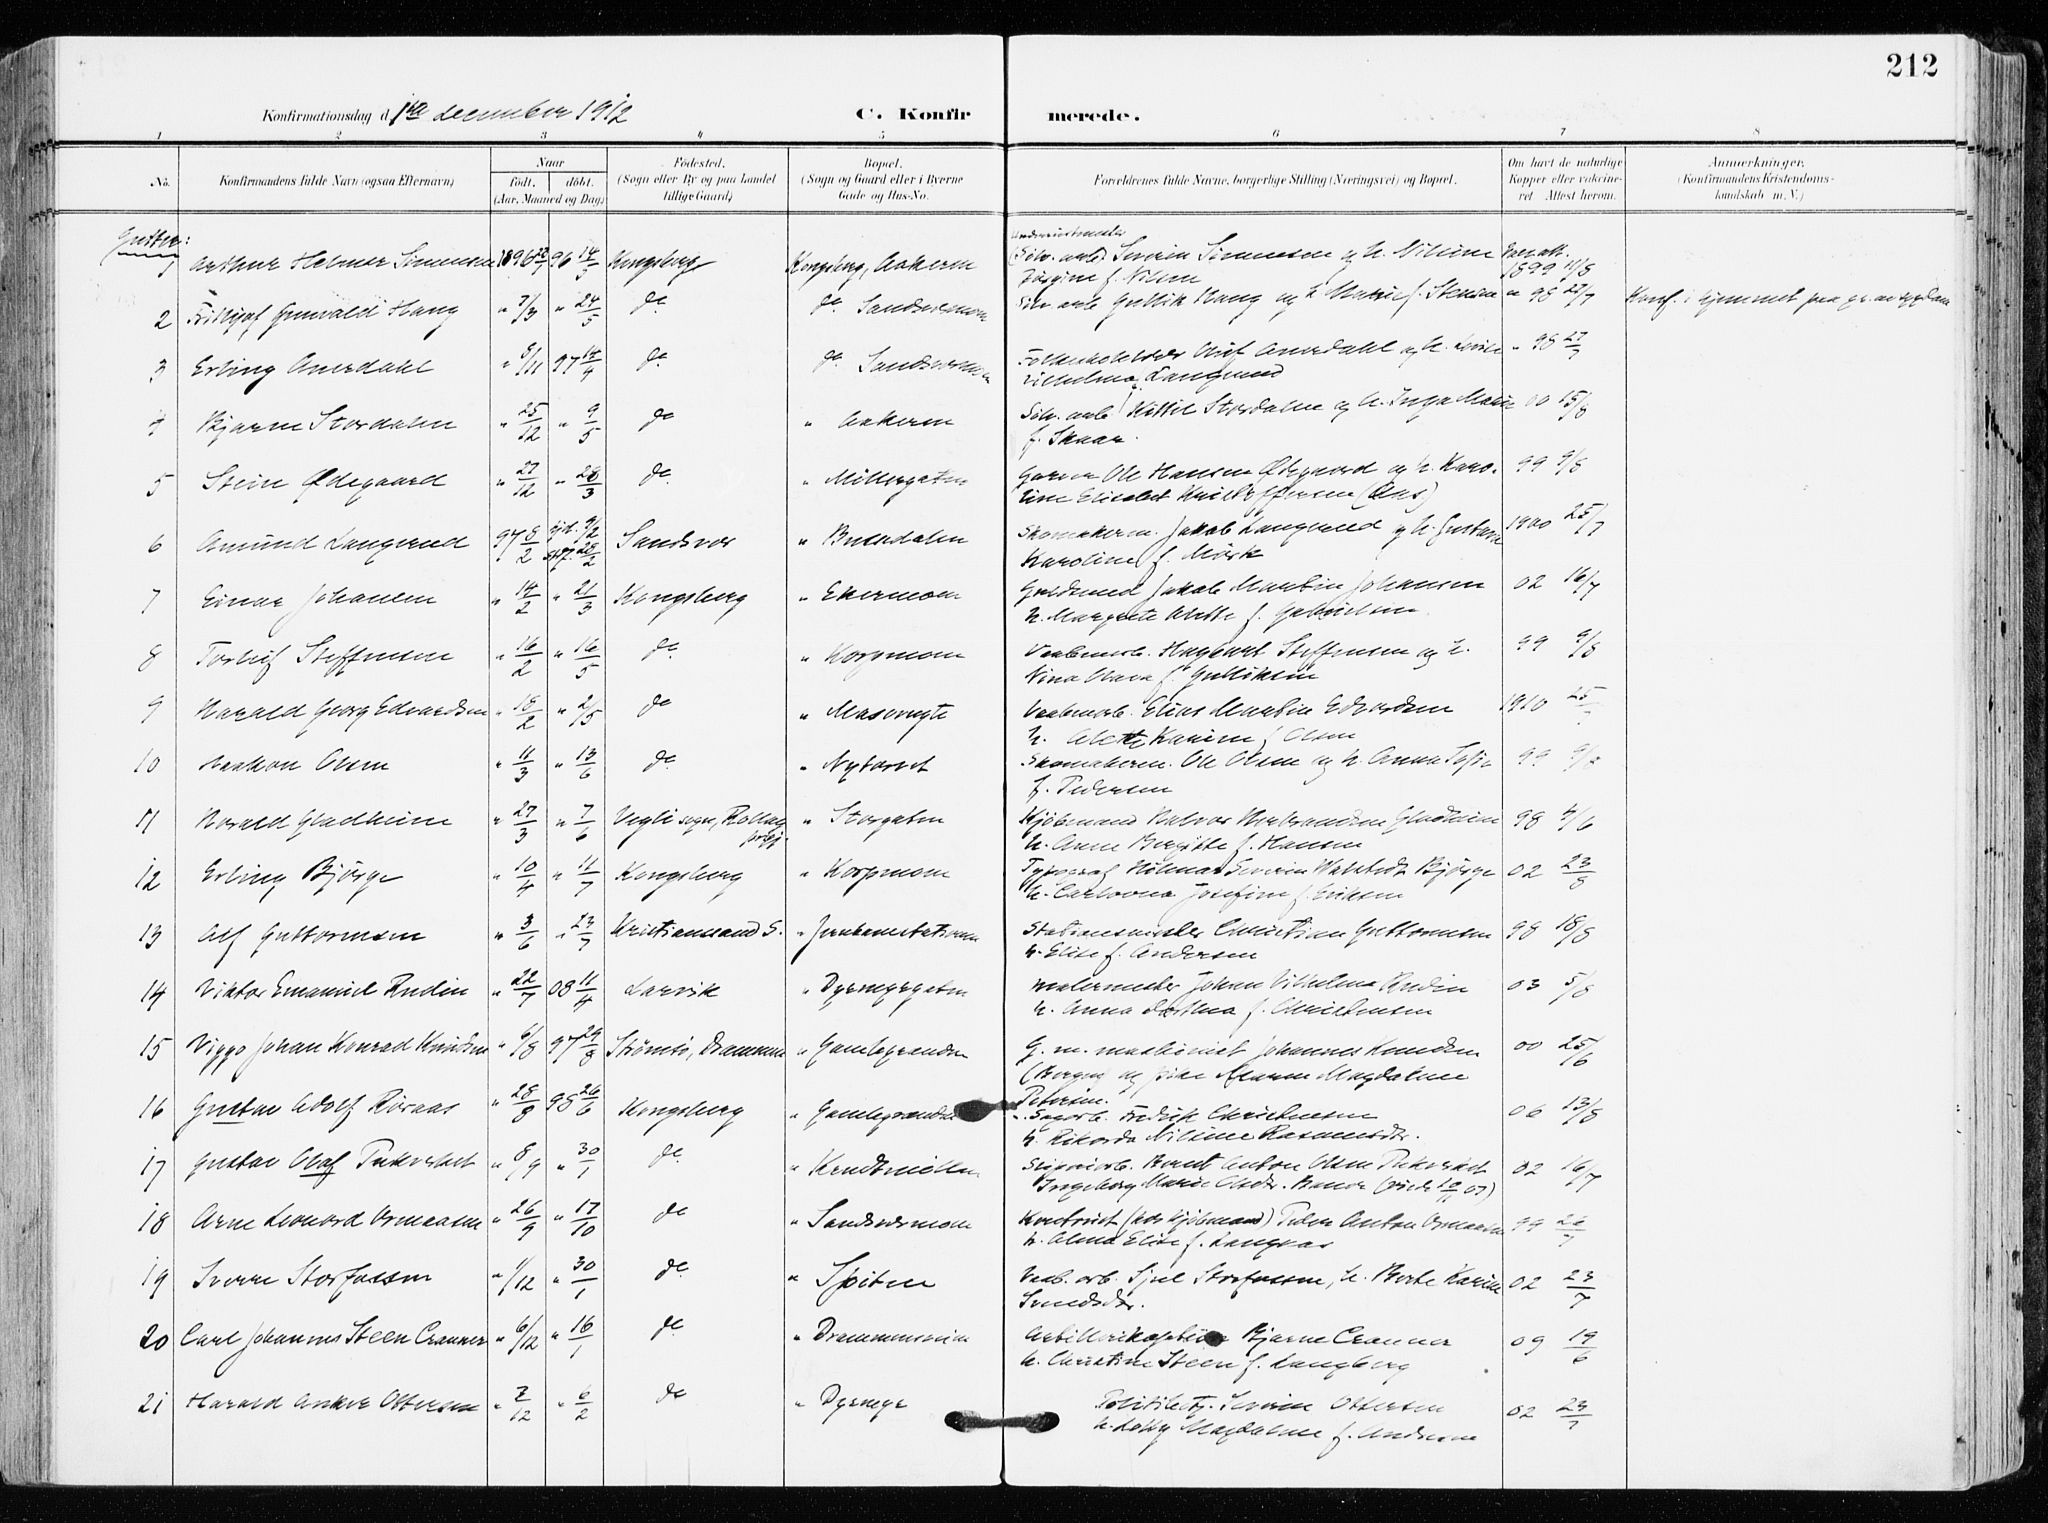 212
Konfirmationsdag d. 1ste december 1912 C. Konfirmerede.
1 2 3 4 5 6 7 8
No. Konfirmandens fulde Navn (ogsaa Efternavn) Naar født, døbt, (Aar, Maaned og Dag) Fødested, (Sogn eller By og paa Landet tillige Gaard) Bopæl, (Sogn og Gaard eller i Byerne Gade og Hus-No. Forældrenes fulde Navne, borgerlige Stilling (Næringsvei) og Bopæl. Om havt de naturlige Kopper eller vaccineret Attest herom. Anmerkninger, (Konfirmandens Kristendomskundskab m. V.)
Gutter:
1 Arthur Helmer Simensen 1896 96 14/3 Kongsberg Kongsberg, Aakeren Severin Simensen og h. 1899 11/8
f. Nilsen
2 Grunvald Haug " 7/3 " 24/5 do do Sandsværmoen Gullik Haug og h. Marie f. Stensen " 98 Konf. i hjemmet paa gr. av sygdom
3 Erling Amerdahl " 97 14/4 do do Sandsværmoen Oluf Amerdahl og h. " 98 27/7
Vilhelmine Langerud
4 Bjarne Stordalen " 25/12 " 9/5 do " Aakeren Sølv. arb. Kittil Stordalen og h. Inga Marie 00 15/8
f. Skaar.
5 Stein Ødegaard " 27/12 " 28/3 do " Møllergaten Garver Ole Hansen Ødegaard og h. Karo- 99 9/8
line Elisabet Kristoffersen (Aas)
6 Amund Langerud 97 8/2 hjd. 9/2 Sandsvær " Busdalen Skomakerm. Jakob Langerud og h. Gustava 1900 25/7
stf. 28/2 Karoline f. Mørk
7 Einar Johansen " 14/2 " 21/3 Kongsberg " Ekermoen Guldsmed Jakob Martin Johansen 02 16/7
h. Margrete Alette f. Gabrielsen
8 Torleif Steffensen " 16/2 " 16/5 do " Korpmoen Vaabenarb. Hagbart Steffensen og h. 99 9/8
Nina Olava f. Gulliksen
9 Harald Georg Edvardsen " 18/2 " 2/5 do " Vaabenarb. Elias Martin Edvardsen 1910
h. Alette Karine f. Olsen
10 Haakon Olsen " 11/3 " 13/6 do " Nytorvet Skomakerm. Ole Olsen og h. Anna Sofie 99 9/8
f. Pedersen
11 Harald Gladheim " 27/3 " 7/6 Vegli sogn, Rollag prgj. " Storgaten Kjøbmand Halvor Gladheim 98 4/6
h. Anne Birgitte f. Hansen
12 Erling Bjørge " 10/4 " 11/7 Kongsberg " Korpmoen Typograf Hilmar Severin Walstedt Bjørge 02 23/8
h. Josefine f. Eriksen
13 Alf Guttormsen " 3/6 " 23/7 Kristianssand S. " Jernbanestationen Stationsmester Christian Guttormsen 98 18/8
h. Elise f. Andersen
14 Viktor Emanuel Rudin " 22/7 08 11/4 Larvik " Dyrmyrgaten malermester Johan Vilhelm Rudin 03 5/8
h. Anna Dorthea f. Christensen
15 Viggo Johan Konrad Knudsen " 6/8 97 29/8 Strømsø, Drammen " Gamlegrenden G. m. maskinist Johannes Knudsen 00 25/6
(Bergen) og pike Maren Magdalene
Petersen.
16 Gustav Adolf Røraas " 28/8 98 26/6 Kongsberg " Gamlegrenden Sagarb. Fredrik Christensen 06 13/8
h. Rikarda Nilsine Rasmusdtr.
17 Gustav Olaf Tukerstad " 8/9 " 30/1 do " Anton Olsen 02 16/7
Ingeborg Marie Olsdtr.
18 Arne Leonard Ormaasen " 26/9 " 17/10 do " Sandsværmoen Peder Anton Ormaasen 99
h. Alma Elise f. Langaas
19 Sverre Storfossen " 1/12 " 30/1 do " Spiten Vaab. arb. Storfossen, h. Berte Karine 02 23/7
20 Carl Johannes Steen Cranner " 6/12 " 16/1 do " Drammensveien Artillerikaptein Bjarne Cranner 09 19/6
h. Christine Steen f. Langberg
21 Harald Anker Ottersen " 7/12 " 6/2 do " Dyrmyr Politibetj. Severin Ottersen 02 23/7
h. Magdalene f. Andersen